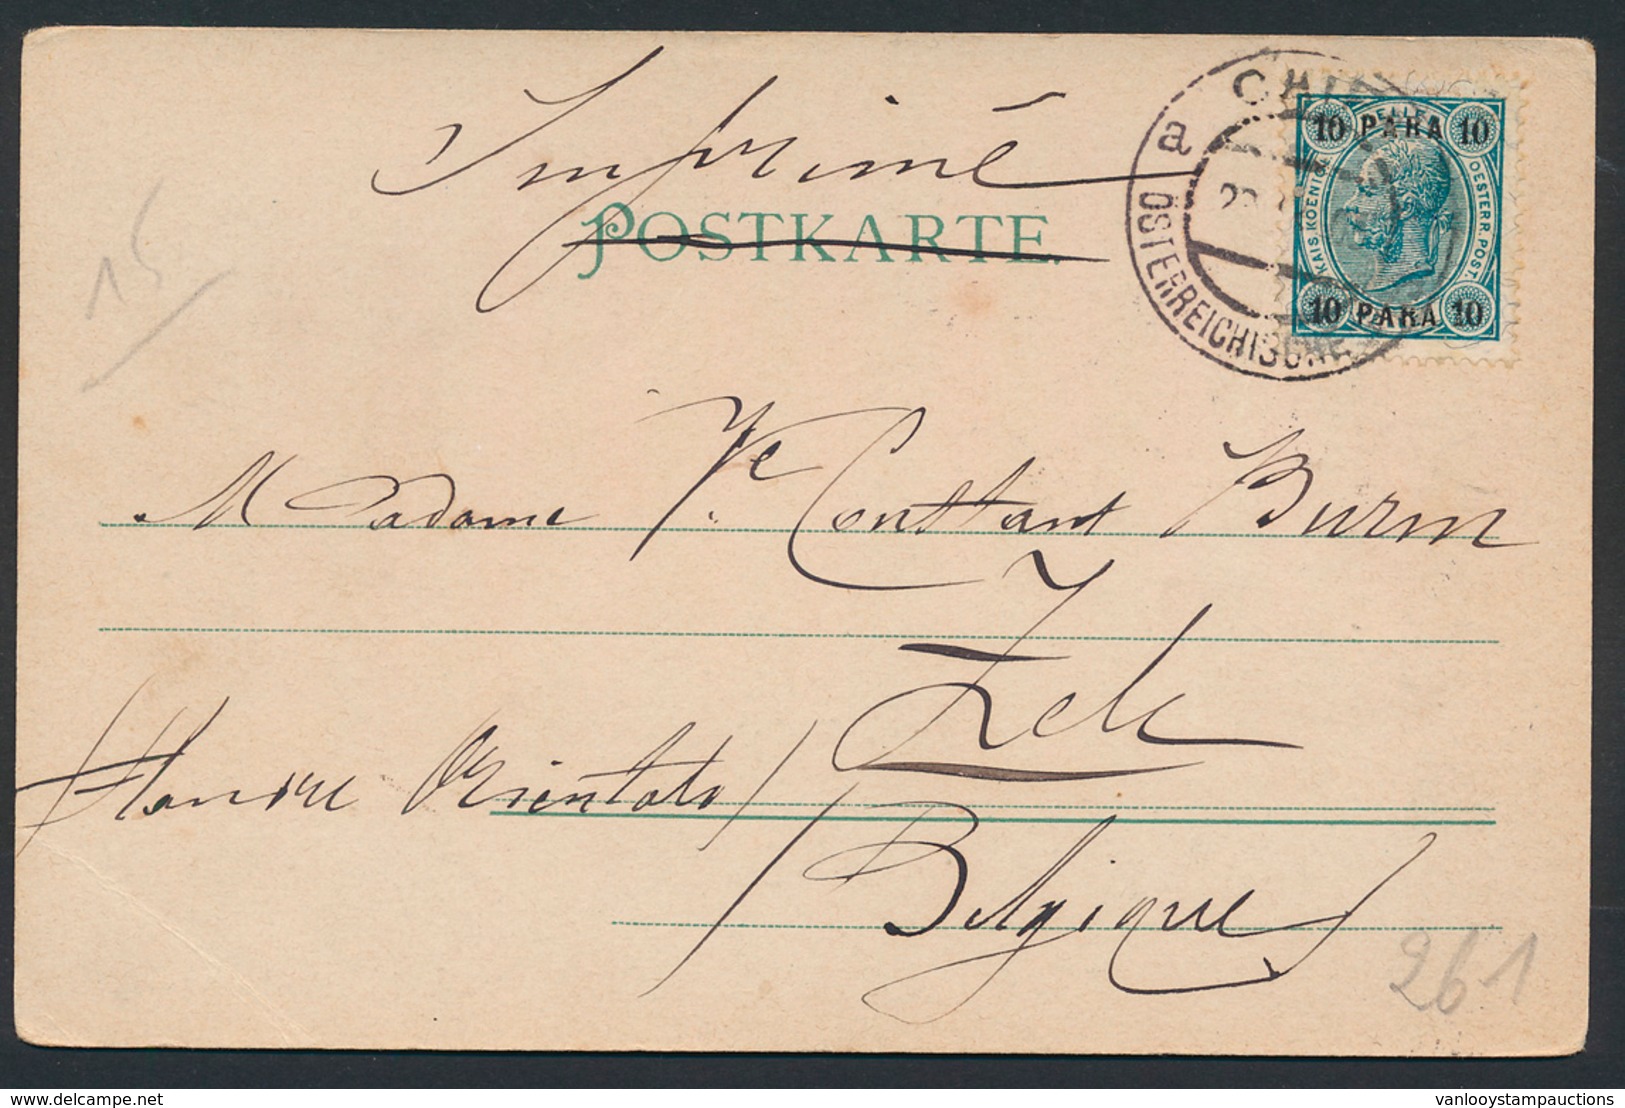 Imprimé
POSTKARTE
10 PARA 10
KAIS. KOENIGL. OESTERR. POST.
10 PARA 10
a
ÖSTERREICHISCHE
15
Madame Ve Constant Burm
Zele
Flandre Orientale /
Belgique
261
vanlooystampauctions